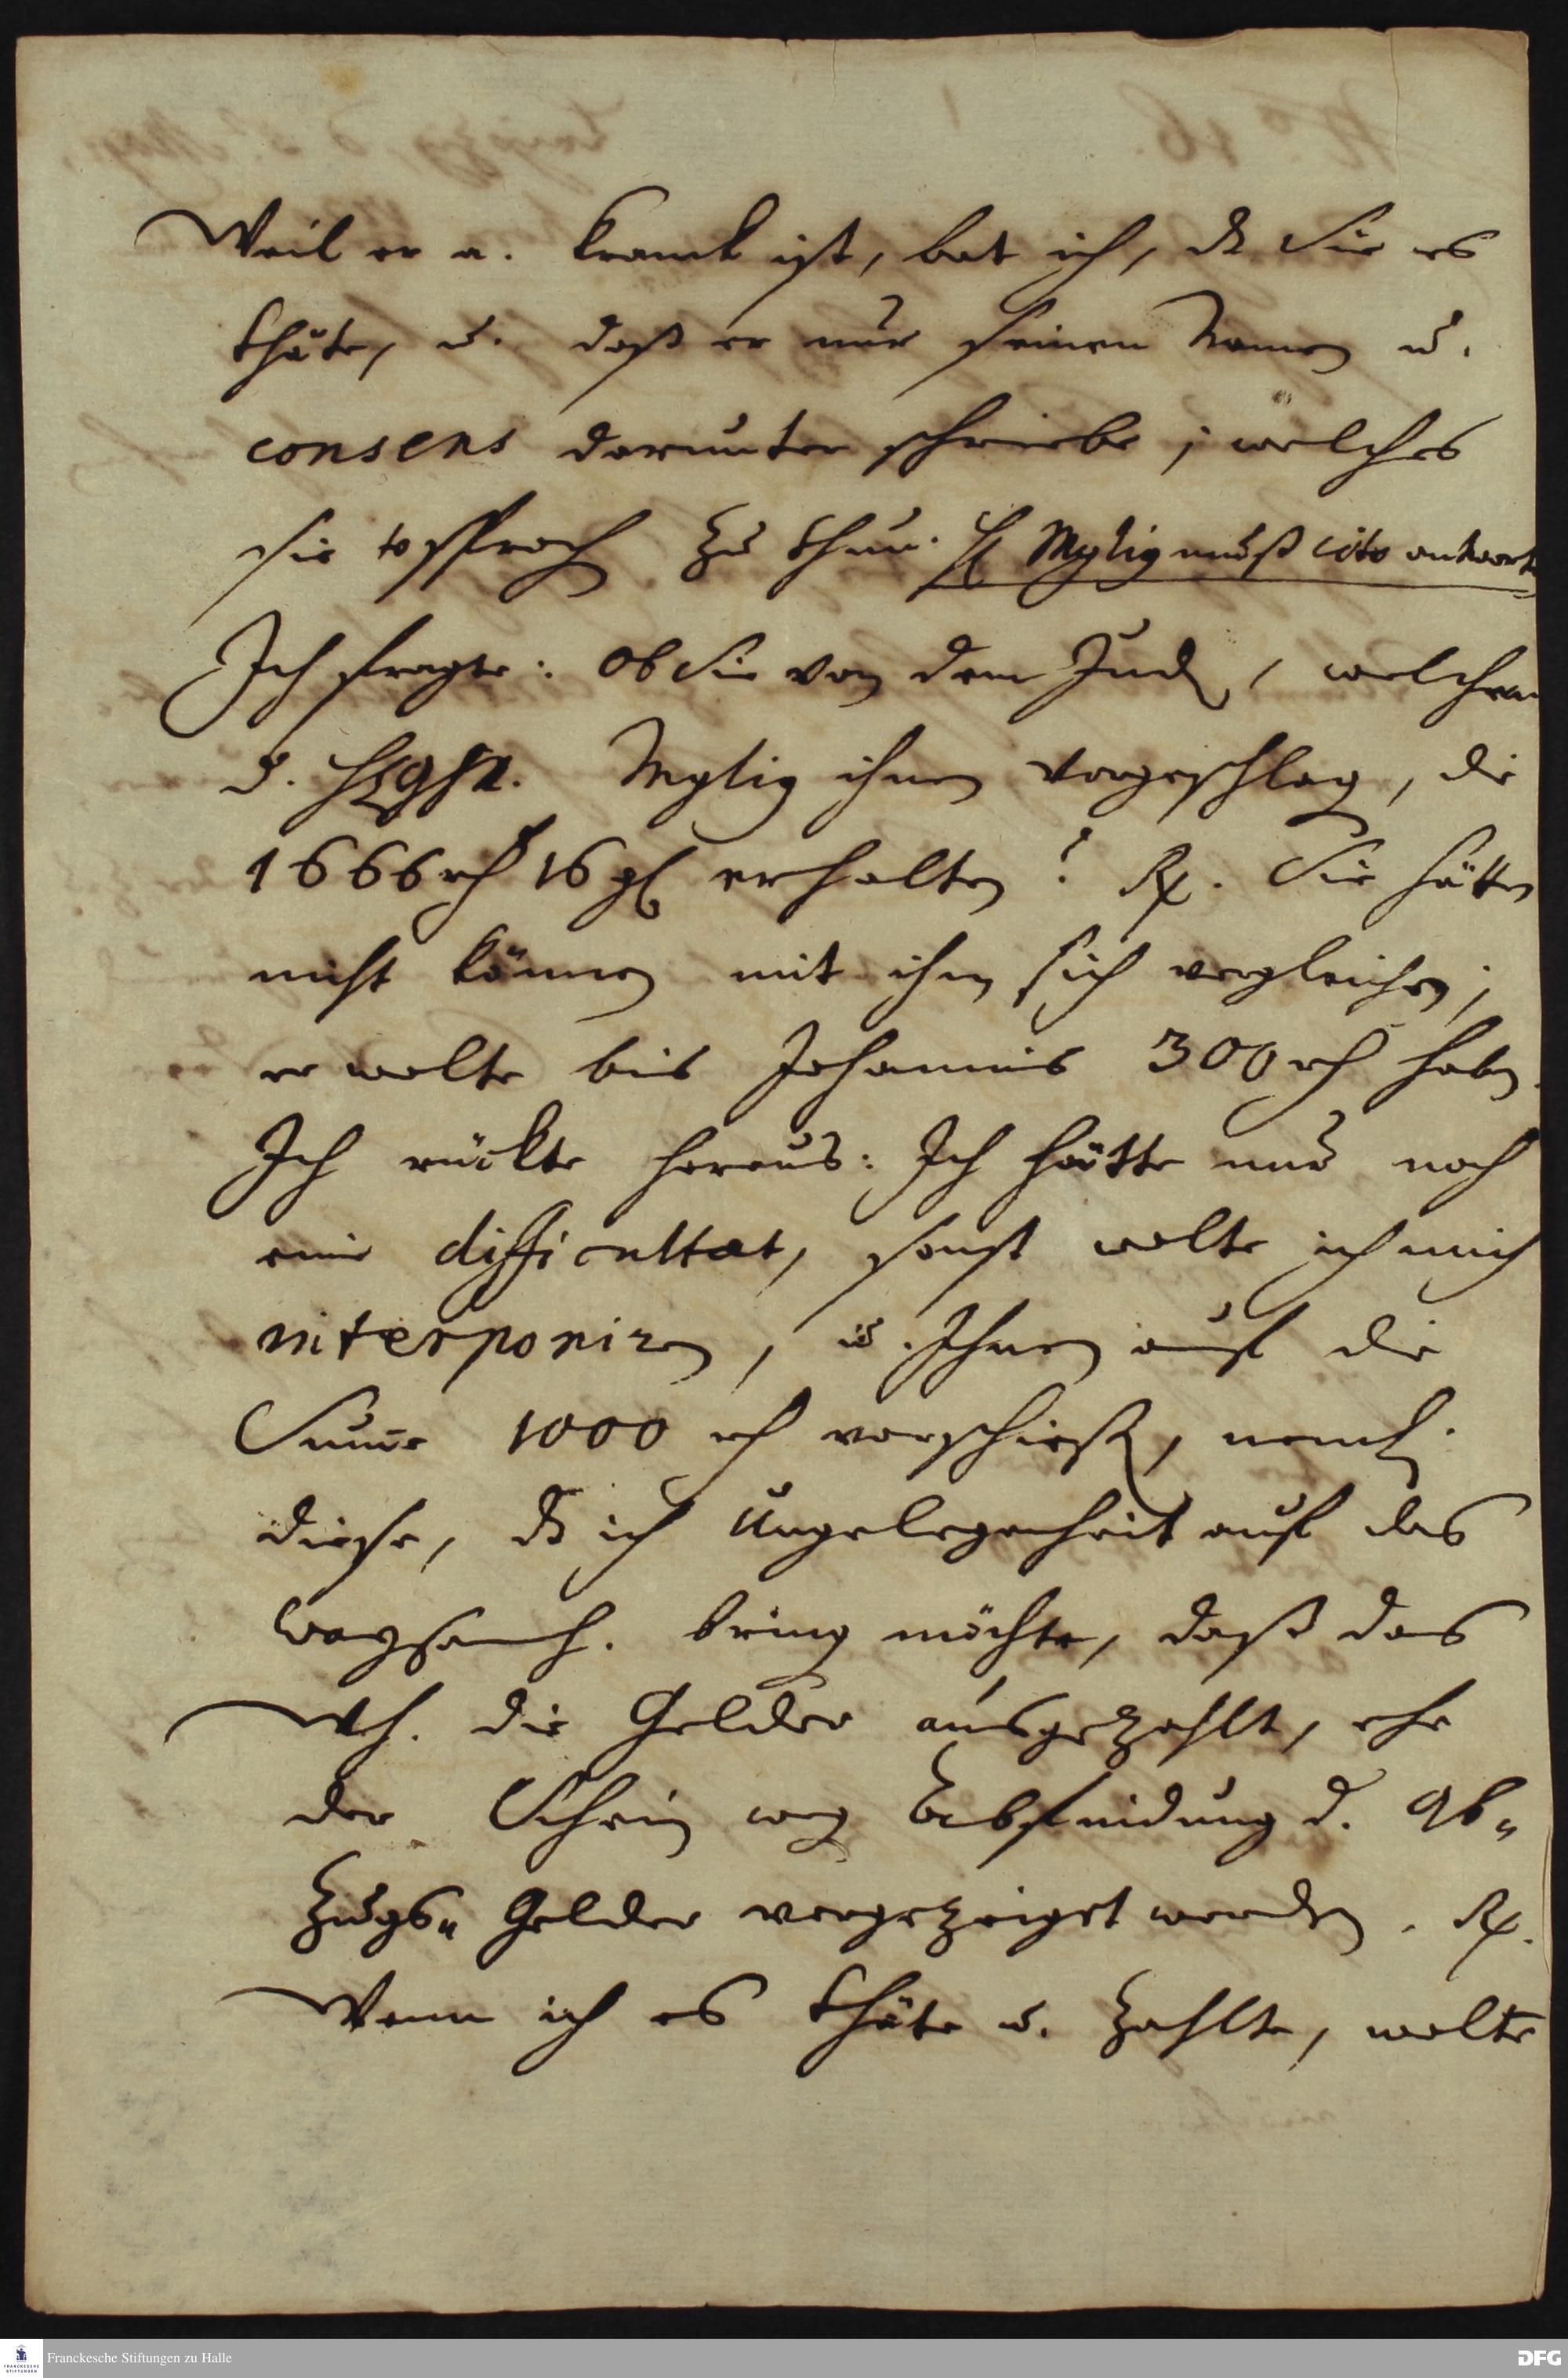 Weil er a. kranck ist, bat ich, dß Sie es
thäte, u. daß er nur seinen Namen u.
consens darunter schriebe; welches
sie versprach zu thun. H Mylig muß cito antwort
Ich fragte: Ob Sie von dem Jud, welchen
d. Mylig ihnen vorgeschlag, die
1666 rh 16 gl erhalten? Rx. Sie hätten
nicht können mit ihm sich vergleichen;
er wolte bis Johannis 300 rh haben.
Ich rückte heraus: Ich hätte nur noch
eine difficultæt, sonst wolte ich mich
interponiren, u. Ihnen auf die
Summe 1000 rh vorschieß, neml.
diese, dß ich Ungelegenheit auf das
Waysenh. bring möchte, daß das
Wh. die Gelder ausgezahlt, ehe
der Schein weg Abfindung d. Ab„
zugs„ Gelder vorgezeiget worden. Rx.
Wenn ich es thäte u. zahlte, wolte
Franckesche Stiftungen zu Halle
DFG